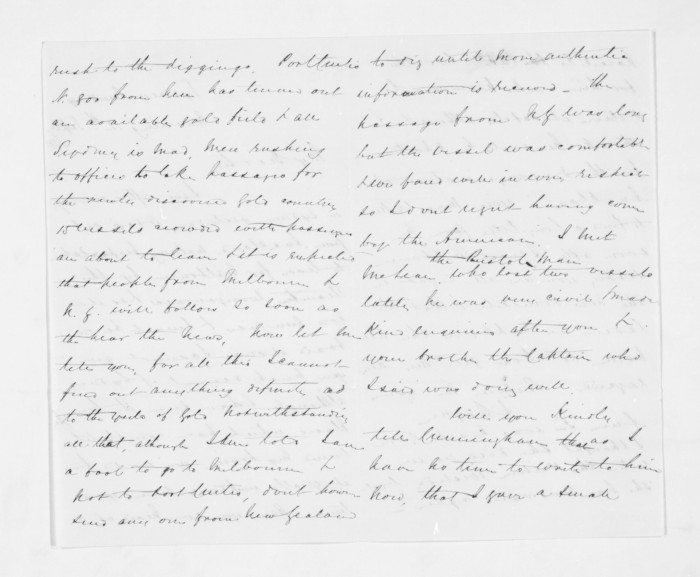 rush to the diggings. Port Curtis
N. 800 from here has turned out
an available gold field & all
Sydney is mad, Men rushing
to offices to take passages for
the newly discovered gold country
10 vessels crowded with passengers
are about to leave & it is expected
that people from Melbourne &
N. Z. will follow so soon as
th hear the news, Now let me
tell you, for all this I cannot
find out anything definite as
to the yield of Gold notwithstanding
all that, although I am told I am
a fool to go to Melbourne &
not to Port Curtis, dont however
send any one from New Zealand
to dig until more authentic
information is received – The
passage from NZ was long
but the vessel was comfortable
& we fared well in every respect
so I dont regret having come
by the American. I met
the Bristol Man
McLean, who lost two vessels
lately he was very civil & made
Kind enquiries after you &
your brother the Captain who
I said was doing well
Will you Kindly
tell Cunningham that as I
have no time to write to him
now, that I gave a small